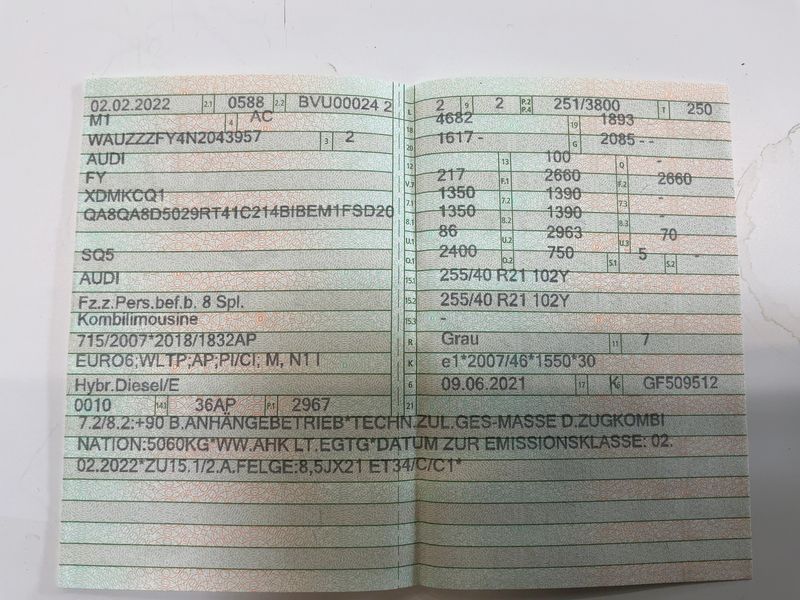 02.02.2022 2.1 0588 2.2 BVU00024 2
M1 4 AC
WAUZZZFY4N2043957 3 2
AUDI
FY
XDMKCQ1
QA8QA8D5029RT41C214BIBEM1FSD20
SQ5
AUDI
Fz.z.Pers.bef.b. 8 Spl.
Kombilimousine
715/2007*2018/1832AP
EURO6;WLTP;AP;PI/CI; M, N1 I
Hybr.Diesel/E
0010 14.1 36AP P.1 2967
L 2 9 2 P.2 P.4 251/3800 T 250
18 4682 19 1893
20 1617 - G 2085 - -
12 - 13 100 Q -
V.7 217 F.1 2660 F.2 2660
7.1 1350 7.2 1390 7.3 -
8.1 1350 8.2 1390 8.3 -
U.1 86 U.2 2963 U.3 70
O.1 2400 O.2 750 S.1 5 S.2 -
15.1 255/40 R21 102Y
15.2 255/40 R21 102Y
15.3 -
R Grau 11 7
K e1*2007/46*1550*30
6 09.06.2021 17 K 16 GF509512
21
7.2/8.2:+90 B.ANHÄNGEBETRIEB*TECHN.ZUL.GES-MASSE D.ZUGKOMBI
NATION:5060KG*WW.AHK LT.EGTG*DATUM ZUR EMISSIONSKLASSE: 02.
02.2022*ZU15.1/2.A.FELGE:8,5JX21 ET34/C/C1*